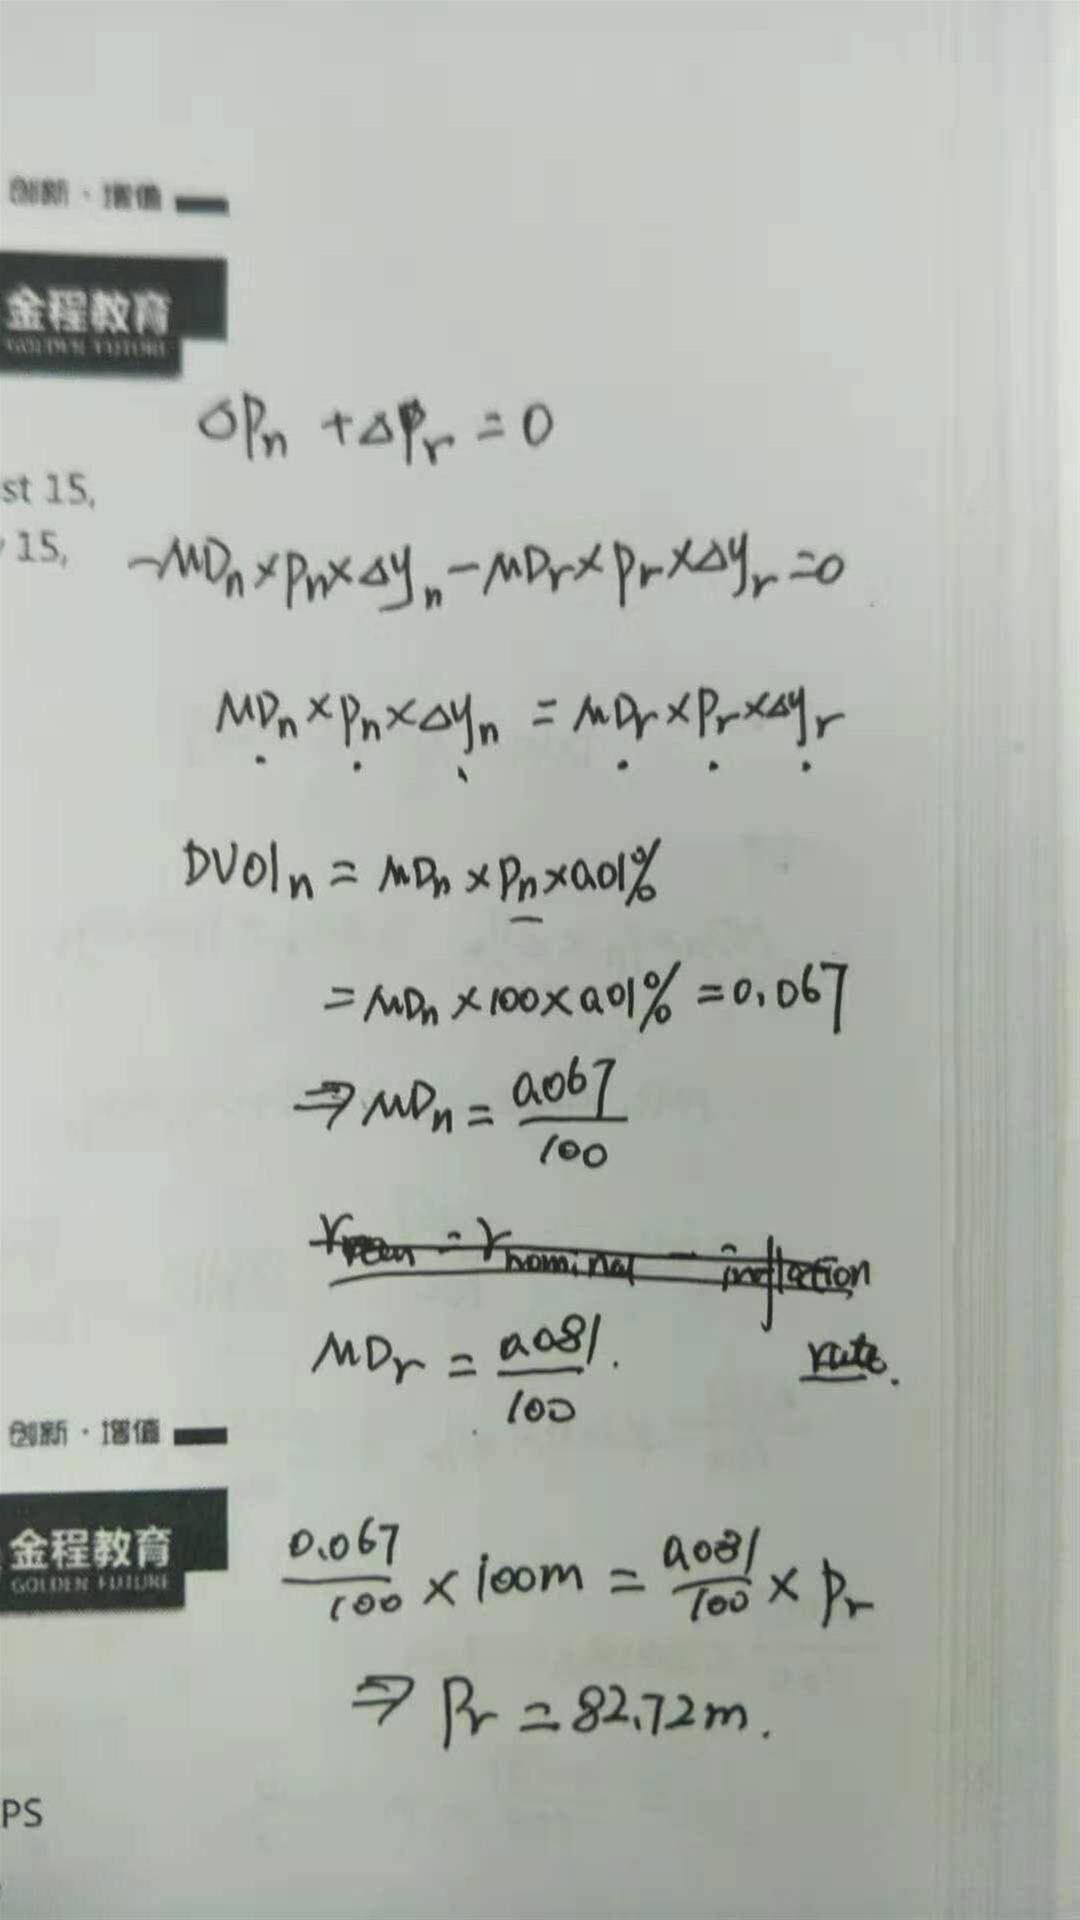 创新·增值
金程教育
GOLDEN FUTURE
ΔPn + ΔPr = 0
st 15,
15,
-MDn × Pn × Δyn - MDr × Pr × Δyr = 0
MDn × Pn × Δyn = MDr × Pr × Δyr
DV01n = MDn × Pn × 0.01%
= MDn × 100 × 0.01% = 0.067
⇒ MDn = 0.067/100
r = rnominal - inflation
rate.
MDr = 0.081/100.
创新·增值
金程教育
GOLDEN FUTURE
0.067/100 × 100m = 0.081/100 × Pr
⇒ Pr = 82.72m.
PS